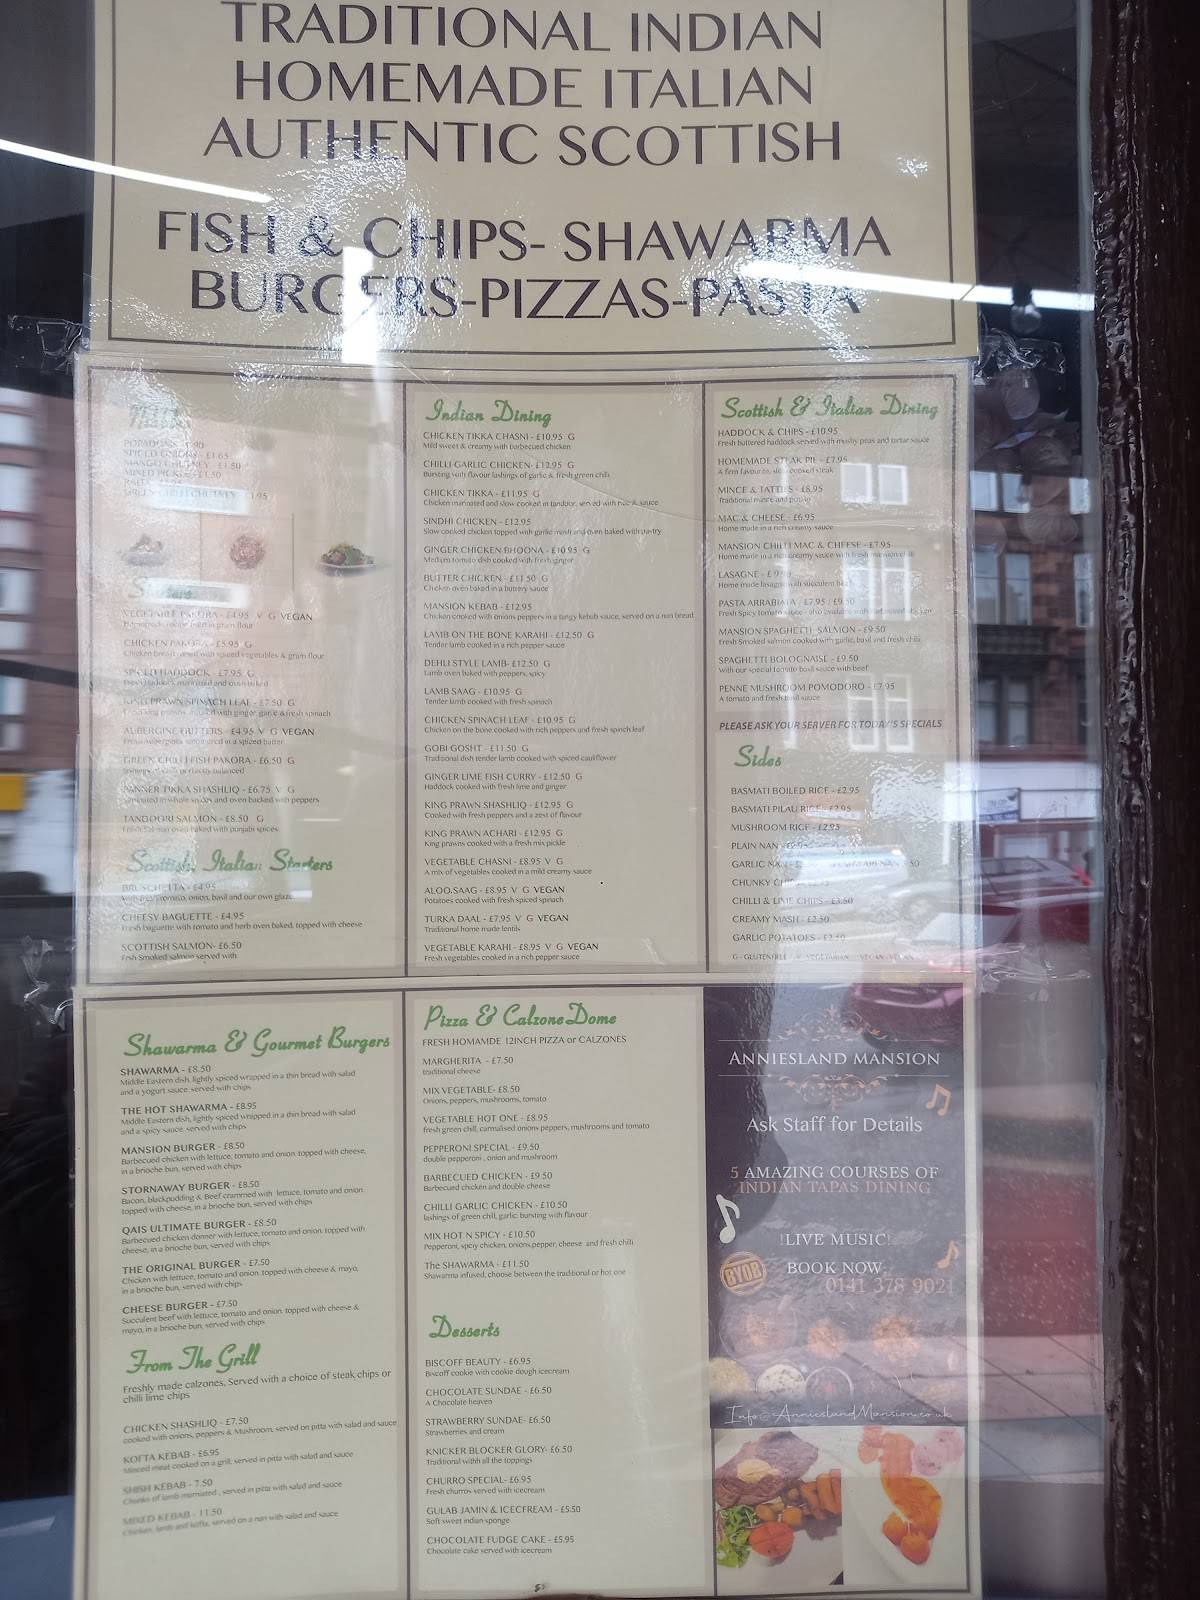 TRADITIONAL INDIAN
HOMEMADE ITALIAN
AUTHENTIC SCOTTISH
FISH & CHIPS- SHAWARMA
BURGERS-PIZZAS-PASTA
SPICED ONIONS - £1.65
MANGO CHUTNEY - £1.50
MIXED PICKLE - £1.50
VEGETABLE PAKORA - £4.95 V G VEGAN
CHICKEN PAKORA - £5.95 G
Chicken breast mixed with spiced vegetables & gram flour
SPICED HADDOCK - £7.95 G
KING PRAWN SPINACH LEAF - £7.50 G
AUBERGINE FRITTERS - £4.95 V G VEGAN
GREEN CHILLI FISH PAKORA - £6.50 G
PANNER TIKKA SHASHLIQ - £6.75 V G
marinated in whole spices and oven backed with peppers
TANDOORI SALMON - £8.50 G
Fresh Salmon oven baked with punjabi spices
Scottish, Italian Starters
BRUSCHETTA - £4.95
with fresh tomato, onion, basil and our own glaze
CHEESY BAGUETTE - £4.95
Fresh baguette with tomato and herb oven baked, topped with cheese
SCOTTISH SALMON- £6.50
Fresh Smoked salmon served with
Indian Dining
CHICKEN TIKKA CHASNI - £10.95 G
Mild sweet & creamy with barbecued chicken
CHILLI GARLIC CHICKEN- £12.95 G
Bursting with flavour lashings of garlic & fresh green chilli
CHICKEN TIKKA - £11.95 G
Chicken marinated and slow cooked in tandoor, served with rice & sauce
SINDHI CHICKEN - £12.95
Slow cooked chicken topped with garlic mash and oven baked with pastry
GINGER CHICKEN BHOONA - £10.95 G
Medium tomato dish cooked with fresh ginger
BUTTER CHICKEN - £11.50 G
Chicken oven baked in a buttery sauce
MANSION KEBAB - £12.95
Chicken cooked with onions peppers in a tangy kebab sauce, served on a nan bread
LAMB ON THE BONE KARAHI - £12.50 G
Tender lamb cooked in a rich pepper sauce
DEHLI STYLE LAMB- £12.50 G
Lamb oven baked with peppers, spicy
LAMB SAAG - £10.95 G
Tender lamb cooked with fresh spinach
CHICKEN SPINACH LEAF - £10.95 G
Chicken on the bone cooked with rich peppers and fresh spinch leaf
GOBI GOSHT - £11.50 G
Traditional dish tender lamb cooked with spiced cauliflower
GINGER LIME FISH CURRY - £12.50 G
Haddock cooked with fresh lime and ginger
KING PRAWN SHASHLIQ - £12.95 G
Cooked with fresh peppers and a zest of flavour
KING PRAWN ACHARI - £12.95 G
King prawns cooked with a fresh mix pickle
VEGETABLE CHASNI - £8.95 V G
A mix of vegetables cooked in a mild creamy sauce
ALOO.SAAG - £8.95 V G VEGAN
Potatoes cooked with fresh spiced spinach
TURKA DAAL - £7.95 V G VEGAN
Traditional home made lentils
VEGETABLE KARAHI - £8.95 V G VEGAN
Fresh vegetables cooked in a rich pepper sauce
Scottish & Italian Dining
HADDOCK & CHIPS - £10.95
Fresh battered haddock served with mushy peas and tartar sauce
HOMEMADE STEAK PIE - £7.95
A firm favourite, slow cooked steak
MINCE & TATTIES - £8.95
Traditional mince and potato
MAC & CHEESE - £6.95
Home made in a rich creamy sauce
MANSION CHILLI MAC & CHEESE - £7.95
Home made in a rich creamy sauce with fresh mansion chilli
LASAGNE - £
Home made lasagne with succulent
PASTA ARRABIATA - £7.95 / £9.50
Fresh Spicy tomato sauce - also available with
MANSION SPAGHETTI SALMON - £9.50
Fresh Smoked salmon cooked with garlic, basil and fresh chilli
SPAGHETTI BOLOGNAISE - £9.50
with our special tomato basil sauce with beef
PENNE MUSHROOM POMODORO - £7.95
A tomato and fresh basil sauce
PLEASE ASK YOUR SERVER FOR TODAY'S SPECIALS
Sides
BASMATI BOILED RICE - £2.95
BASMATI PILAU RICE - £2.95
MUSHROOM RICE - £2.95
PLAIN NAN
GARLIC NAN
CHUNKY
CHILLI & LIME CHIPS - £3.50
CREAMY MASH - £2.50
GARLIC POTATOES - £2.50
Shawarma & Gourmet Burgers
SHAWARMA - £8.50
Middle Eastern dish, lightly spiced wrapped in a thin bread with salad
and a yogurt sauce. served with chips
THE HOT SHAWARMA - £8.95
Middle Eastern dish, lightly spiced wrapped in a thin bread with salad
and a spicy sauce. served with chips
MANSION BURGER - £8.50
Barbecued chicken with lettuce, tomato and onion. topped with cheese,
in a brioche bun, served with chips
STORNAWAY BURGER - £8.50
Bacon, blackpudding & Beef crammed with lettuce, tomato and onion.
topped with cheese, in a brioche bun, served with chips
QAIS ULTIMATE BURGER - £8.50
Barbecued chicken donner with lettuce, tomato and onion. topped with
cheese, in a brioche bun, served with chips
THE ORIGINAL BURGER - £7.50
Chicken with lettuce, tomato and onion. topped with cheese & mayo,
in a brioche bun, served with chips
CHEESE BURGER - £7.50
Succulent beef with lettuce, tomato and onion. topped with cheese &
mayo, in a brioche bun, served with chips
From The Grill
Freshly made calzones, Served with a choice of steak chips or
chilli lime chips
CHICKEN SHASHLIQ - £7.50
cooked with onions, peppers & Mushroom, served on pitta with salad and sauce
KOFTA KEBAB - £6.95
Minced meat cooked on a grill, served in pitta with salad and sauce
SHISH KEBAB - 7.50
Chunks of lamb marinated , served in pitta with salad and sauce
MIXED KEBAB - 11.50
Chicken, lamb and kofta, served on a nan with salad and sauce
Pizza & Calzone Dome
FRESH HOMAMDE 12INCH PIZZA or CALZONES
MARGHERITA - £7.50
traditional cheese
MIX VEGETABLE- £8.50
Onions, peppers, mushrooms, tomato
VEGETABLE HOT ONE - £8.95
fresh green chill, carmalised onions peppers, mushrooms and tomato
PEPPERONI SPECIAL - £9.50
double pepperoni , onion and mushroom
BARBECUED CHICKEN - £9.50
Barbecued chicken and double cheese
CHILLI GARLIC CHICKEN - £10.50
lashings of green chill, garlic bursting with flavour
MIX HOT N SPICY - £10.50
Pepperoni, spicy chicken, onions,pepper, cheese and fresh chilli
The SHAWARMA - £11.50
Shawarma infused, choose between the traditional or hot one
Desserts
BISCOFF BEAUTY - £6.95
Biscoff cookie with cookie dough icecream
CHOCOLATE SUNDAE - £6.50
A Chocolate heaven
STRAWBERRY SUNDAE- £6.50
Strawberries and cream
KNICKER BLOCKER GLORY- £6.50
Traditional withh all the toppings
CHURRO SPECIAL- £6.95
Fresh churros served with icecream
GULAB JAMIN & ICECFREAM - £5.50
Soft sweet indian sponge
CHOCOLATE FUDGE CAKE - £5.95
Chocolate cake served with icecream
ANNIESLAND MANSION
Ask Staff for Details
5 AMAZING COURSES OF
INDIAN TAPAS DINING
!LIVE MUSIC!
BYOB
BOOK NOW
0141 378 9021
Info@AnnieslandMansion.co.uk